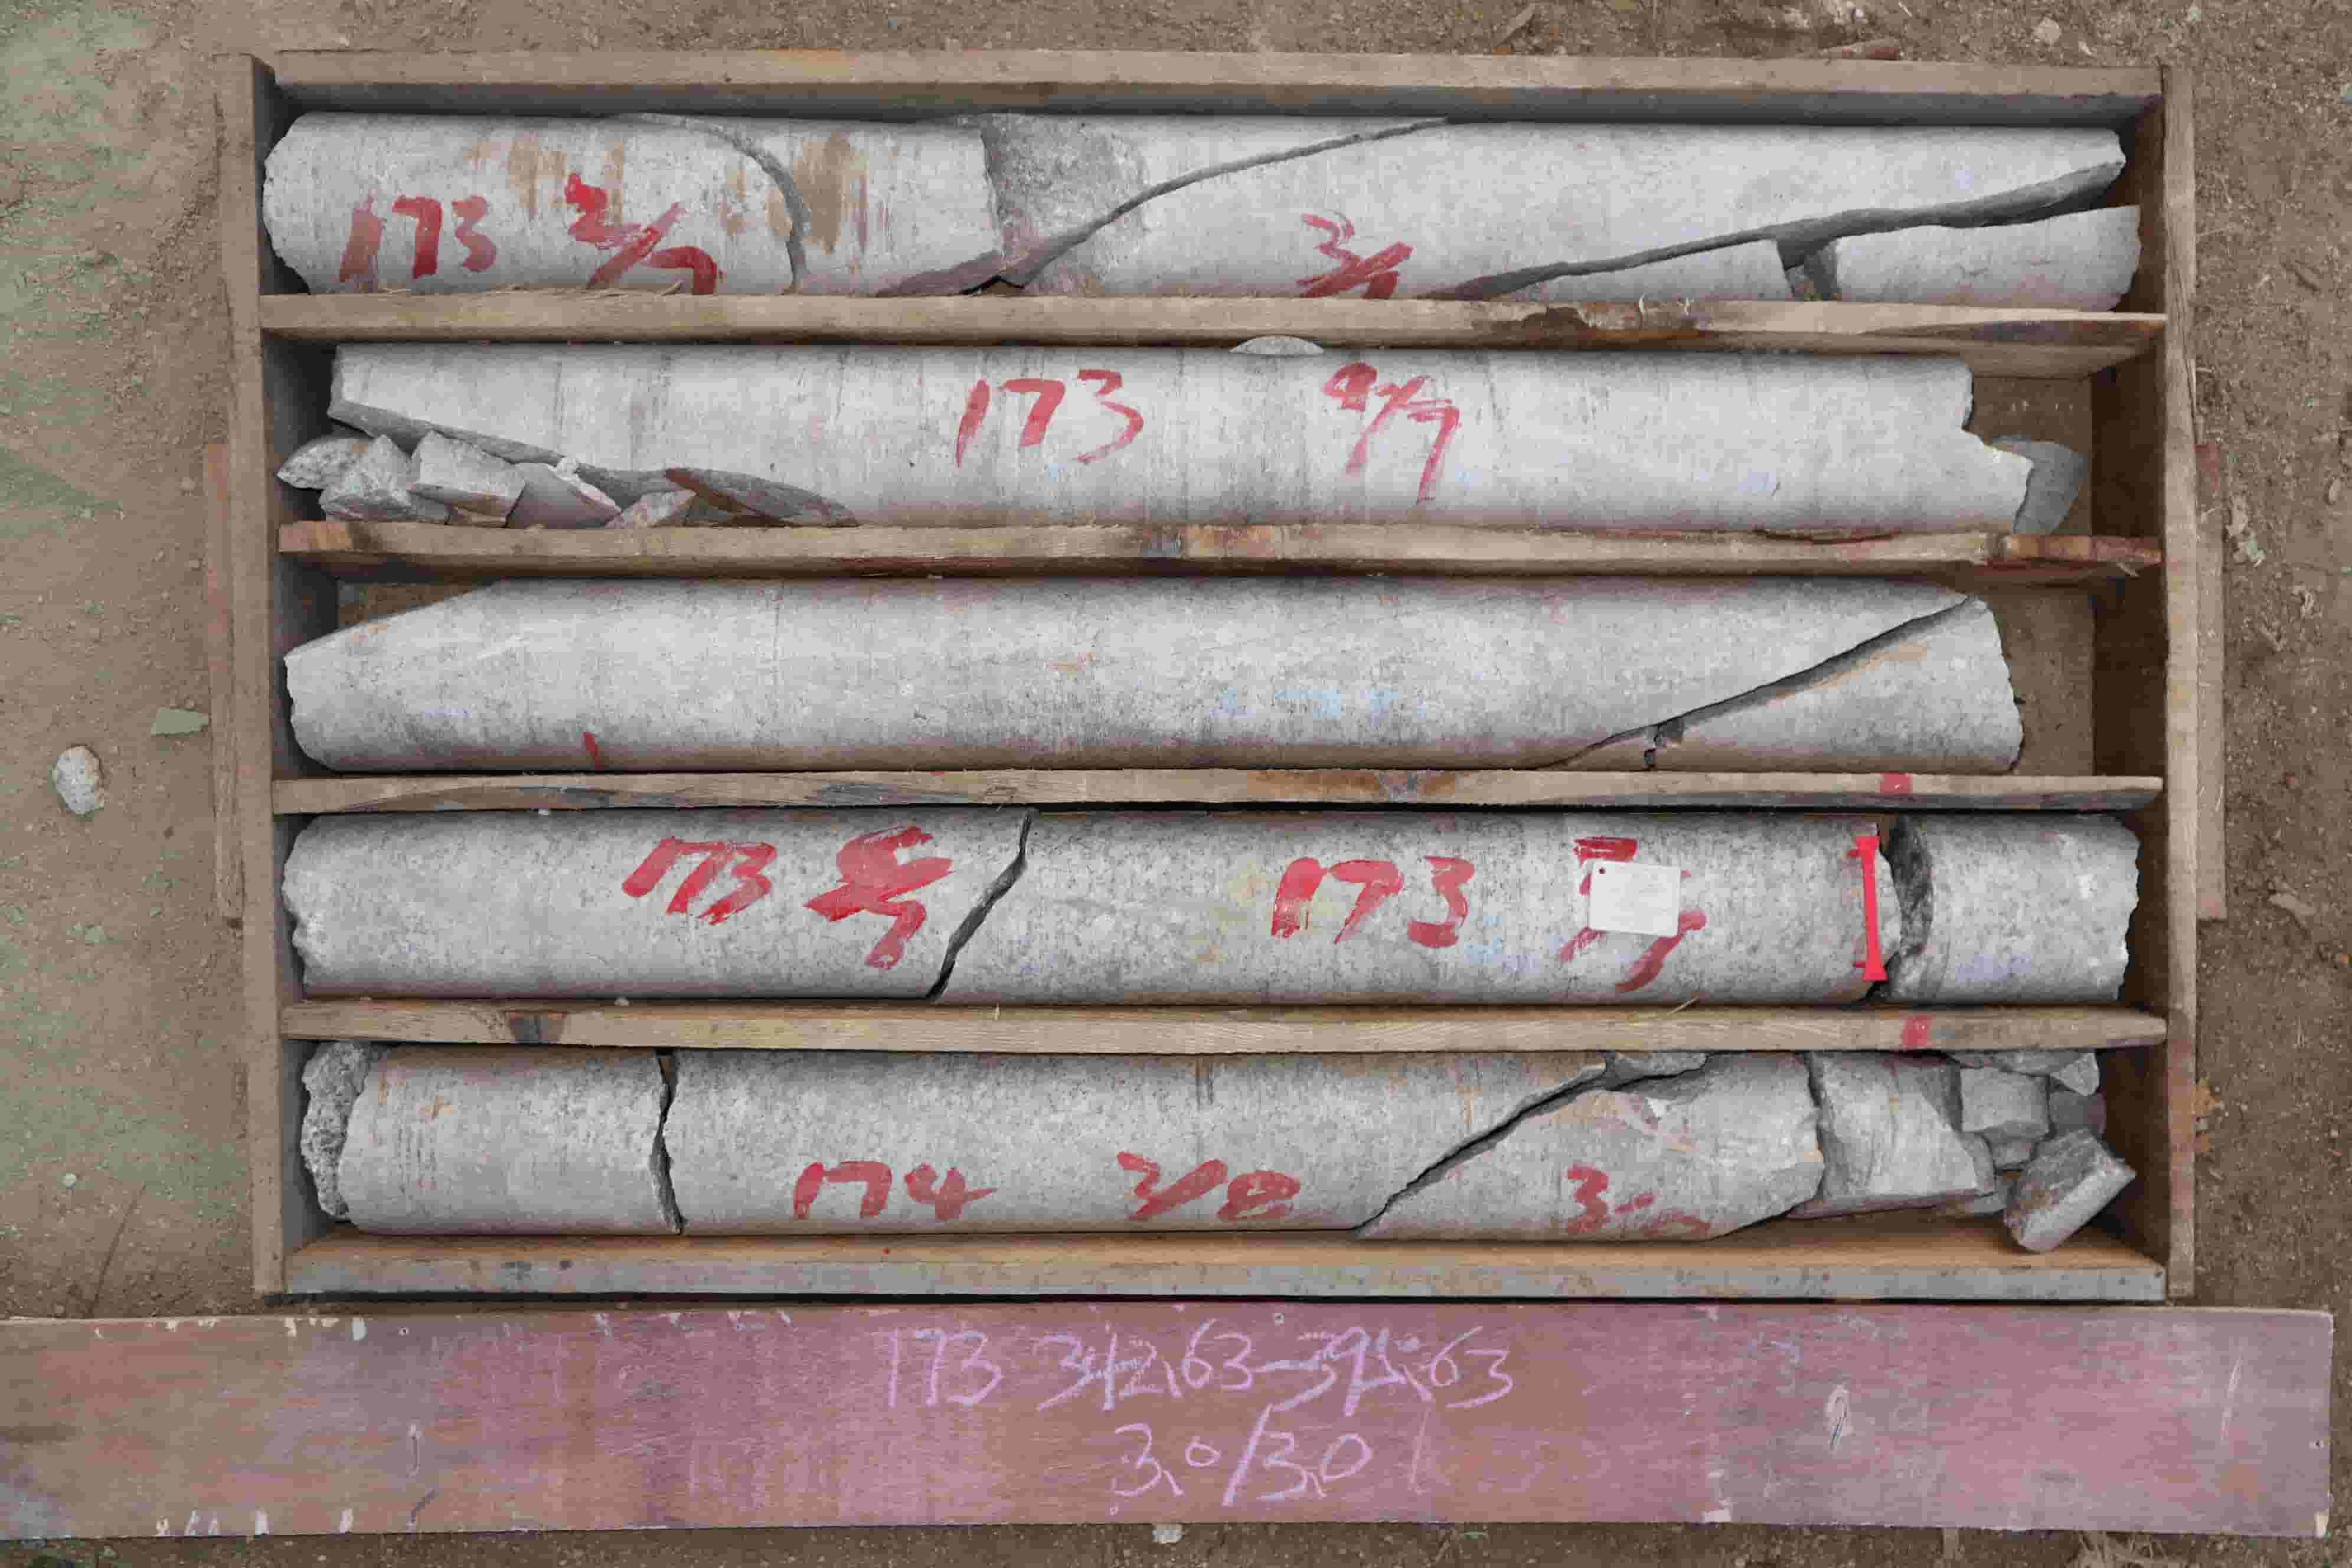 173 2/7
3/7
173 4/7
173
173
174 3/8
173 342.63-345.63
3.0/3.0